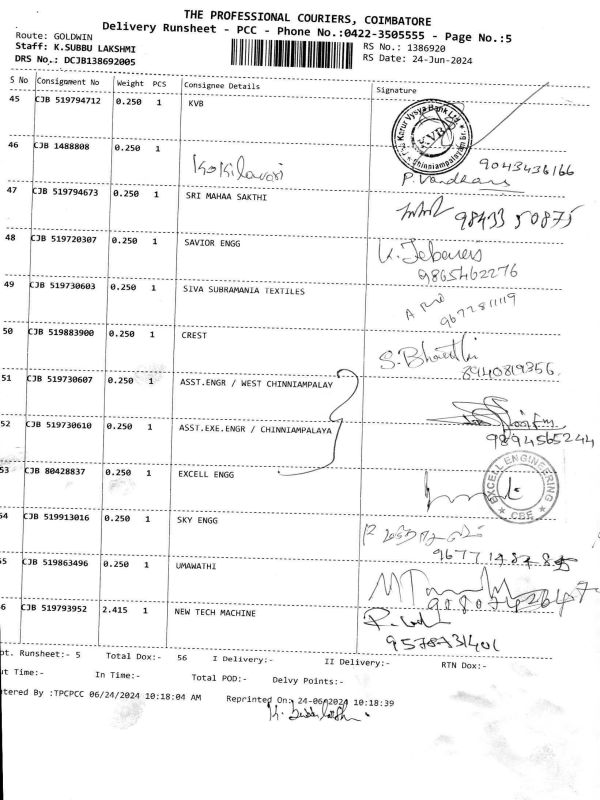 THE PROFESSIONAL COURIERS, COIMBATORE
Delivery Runsheet - PCC - Phone No.:0422-3505555 - Page No.:5
Route: GOLDWIN
RS No.: 1386920
Staff: K.SUBBU LAKSHMI
RS Date: 24-Jun-2024
DRS No.: DCJB138692005
S No Consignment No Weight PCS Consignee Details Signature
45 CJB 519794712 0.250 1 KVB
Karur Vysya Bank Ltd.
KVB
Chinniampalayam
46 CJB 1488808 0.250 1 Kokilavari
9043436166
47 CJB 519794673 0.250 1 SRI MAHAA SAKTHI
98433 50875
48 CJB 519720307 0.250 1 SAVIOR ENGG
9865462276
49 CJB 519730603 0.250 1 SIVA SUBRAMANIA TEXTILES
9677811119
50 CJB 519883900 0.250 1 CREST
S. Bharathi
8940819356
51 CJB 519730607 0.250 1 ASST.ENGR / WEST CHINNIAMPALAY
52 CJB 519730610 0.250 1 ASST.EXE.ENGR / CHINNIAMPALAYA
9894565244
53 CJB 80428837 0.250 1 EXCELL ENGG
EXCELL ENGINEERING
CBE
54 CJB 519913016 0.250 1 SKY ENGG
55 CJB 519863496 0.250 1 UMAWATHI
56 CJB 519793952 2.415 1 NEW TECH MACHINE
9578731401
pt. Runsheet:- 5 Total Dox:- 56 I Delivery:- II Delivery:- RTN Dox:-
ut Time:- In Time:- Total POD:- Delvy Points:-
tered By :TPCPCC 06/24/2024 10:18:04 AM Reprinted On: 24-06-2024 10:18:39